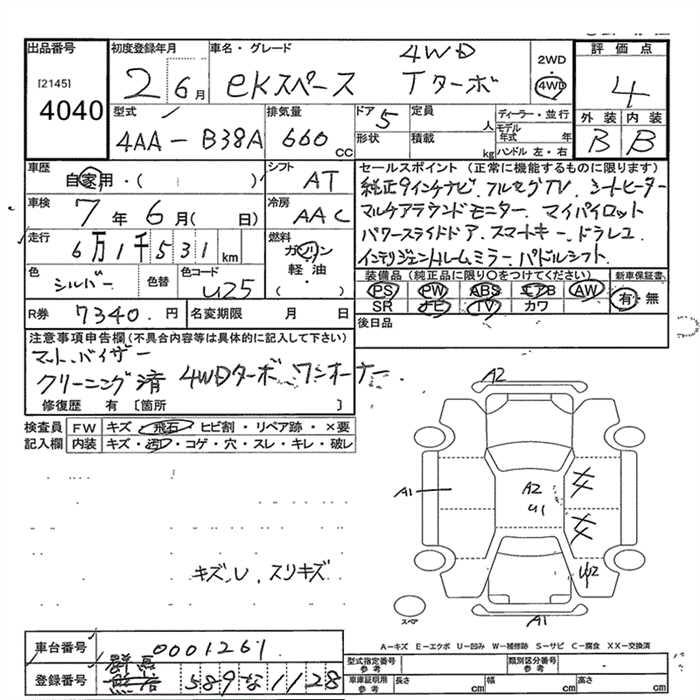 出品番号
[2145]
4040
初度登録年月
2 6月
車名・グレード
4WD
eKスペース Tターボ
2WD
4WD
評価点
4
外装 内装
B B
型式
4AA-B38A
排気量
660 cc
ドア
5
形状
定員
人
積載
kg
ディーラー・並行
モデル年式 年
ハンドル 左・右
車歴
自家用・( )
シフト
AT
車検
7年6月( 日)
冷房
AAC
走行
6万1千531km
燃料
ガソリン
軽油・
( )
色
シルバー
色替
色コード
U25
R券
7340.円
名変期限 月 日
セールスポイント(正常に機能するものに限ります)
純正9インチナビ.フルセグTV.シートヒーター
マルチアラウンドモニター.マイパイロット
パワースライドドア.スマートキー.ドラレコ
インテリジェントルームミラー.パドルシフト.
装備品(純正品に限り○をつけてください)
PS PW ABS エアB AW
SR ナビ TV カワ
新車保証書
有・無
後日品
注意事項申告欄(不具合内容等は具体的に記入して下さい)
マット.バイザー
クリーニング済 4WDターボ ワンオーナー.
修復歴 有〔箇所 〕
検査員記入欄
FW キズ・飛石・ヒビ割・リペア跡・×要
内装 キズ・汚レ・コゲ・穴・スレ・キレ・破レ
キズ,U.スリキズ
A2
A1
A2
U1
A1
スペア
A-キズ E-エクボ U-凹み W-補修跡 S-サビ C-腐食 XX-交換済
車台番号
0001261
登録番号
589 な 1128
型式指定番号
参考
類別区分番号
参考
車庫証明用
参考
長さ cm
幅 cm
高さ cm